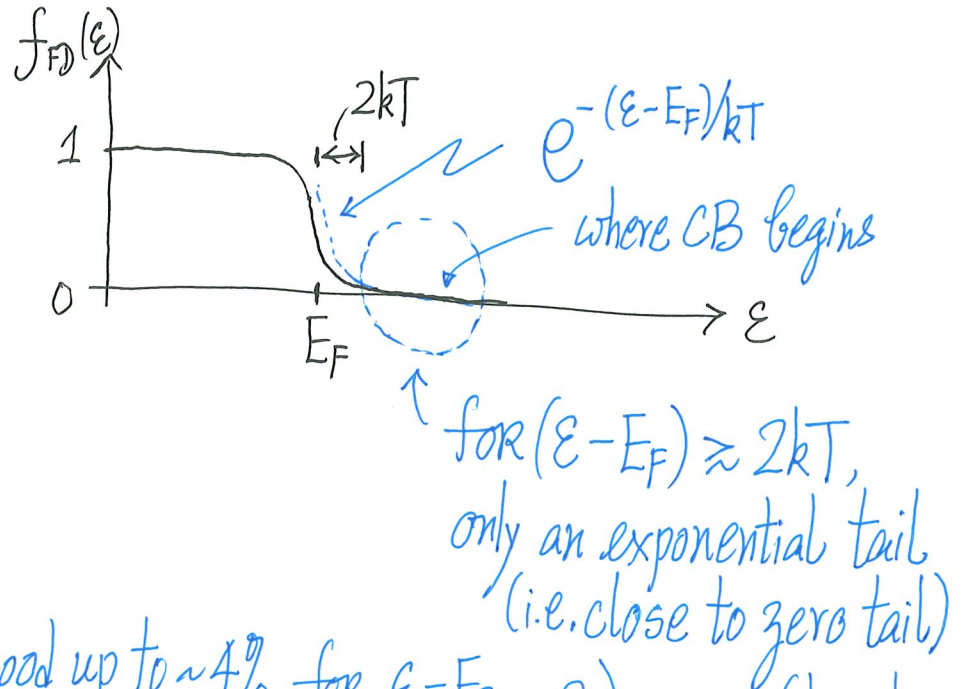 f_FD(ε)
2kT
e^-(ε-E_F)/kT
1
where CB begins
0
E_F
ε
for (ε-E_F) ≳ 2kT,
only an exponential tail
(i.e. close to zero tail)
up to ~4% for ε-E_F